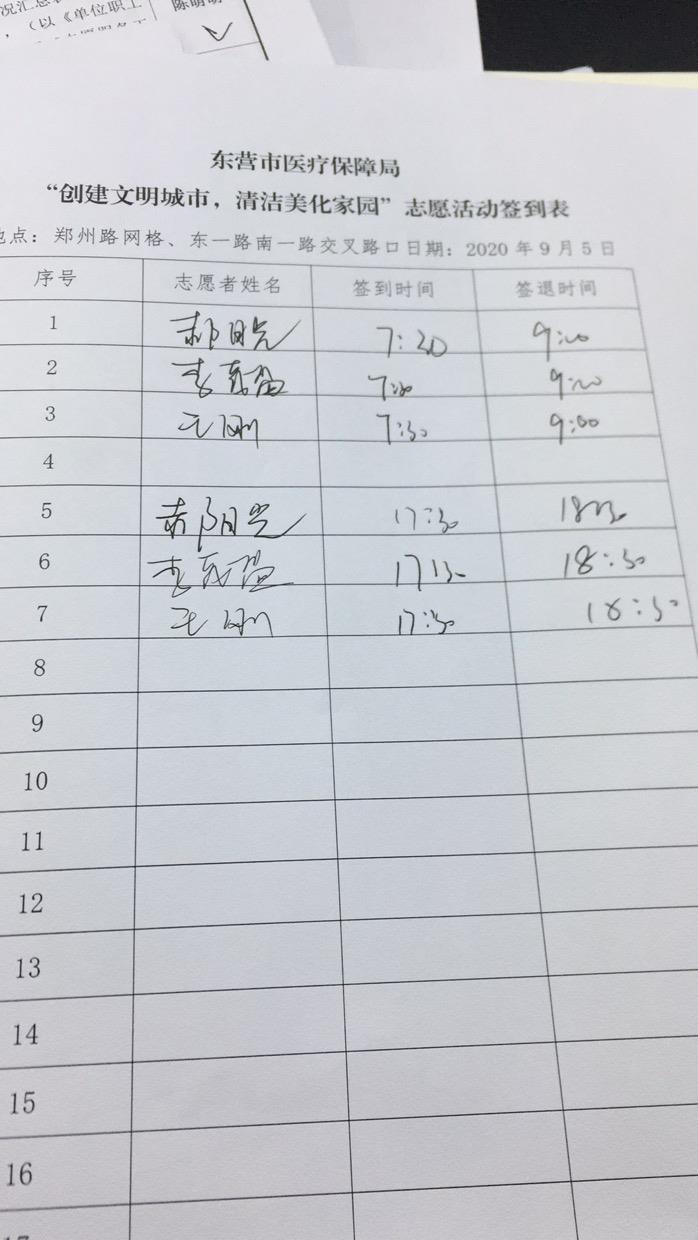 况汇总
，（以《单位职工
陈明明
东营市医疗保障局
“创建文明城市，清洁美化家园”志愿活动签到表
地点：郑州路网格、东一路南一路交叉路口日期：2020 年 9 月 5 日
序号 志愿者姓名 签到时间 签退时间
1 7:20 9:00
2 7:30 9:20
3 王刚 7:30 9:00
4
5 17:30 18:30
6 17:30 18:30
7 王刚 17:30 18:30
8
9
10
11
12
13
14
15
16
17